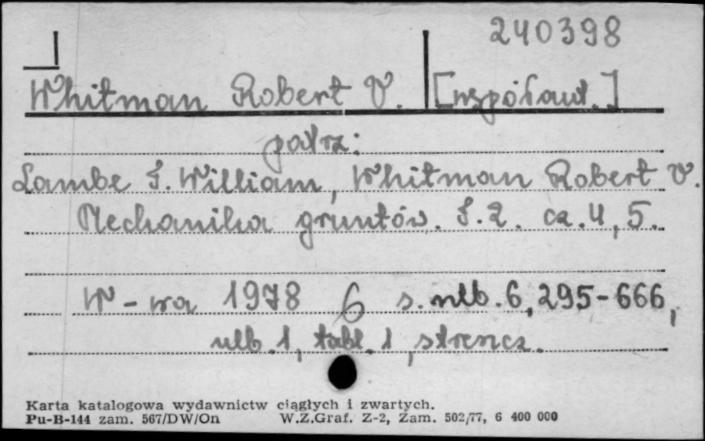 240398
Whitman Robert V. [współaut.]
patrz:
Lambe T. William, Whitman Robert V.
Mechanika gruntów. T.2. cz.4,5.
W-wa 1978 6 s. nlb. 6, 295-666,
nlb. 1, tabl. 1, streszcz.
Karta katalogowa wydawnictw ciągłych i zwartych.
Pu-B-144 zam. 567/DW/On W.Z.Graf. Z-2, Zam. 502/77, 6 400 000